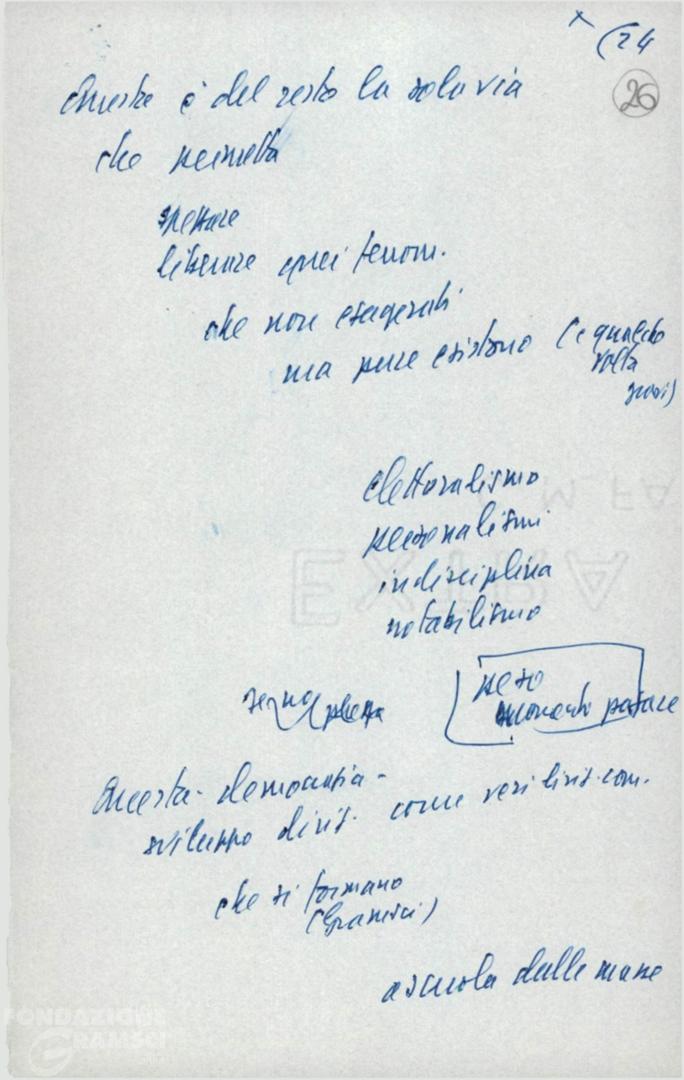 x (24
26
Questa è del resto la sola via
che permetta
spettare
liberare quei fenom.
che non esagerati
ma pure esistono (e qualche
volta
gravi)
elettoralismo
personalismi
indisciplina
notabilismo
peso
Questa - democrazia -
sviluppo dirig. come veri dirig. com.
che si formano
(Gramsci)
a scuola delle masse
EXTRA
FONDAZIONE
GRAMSCI